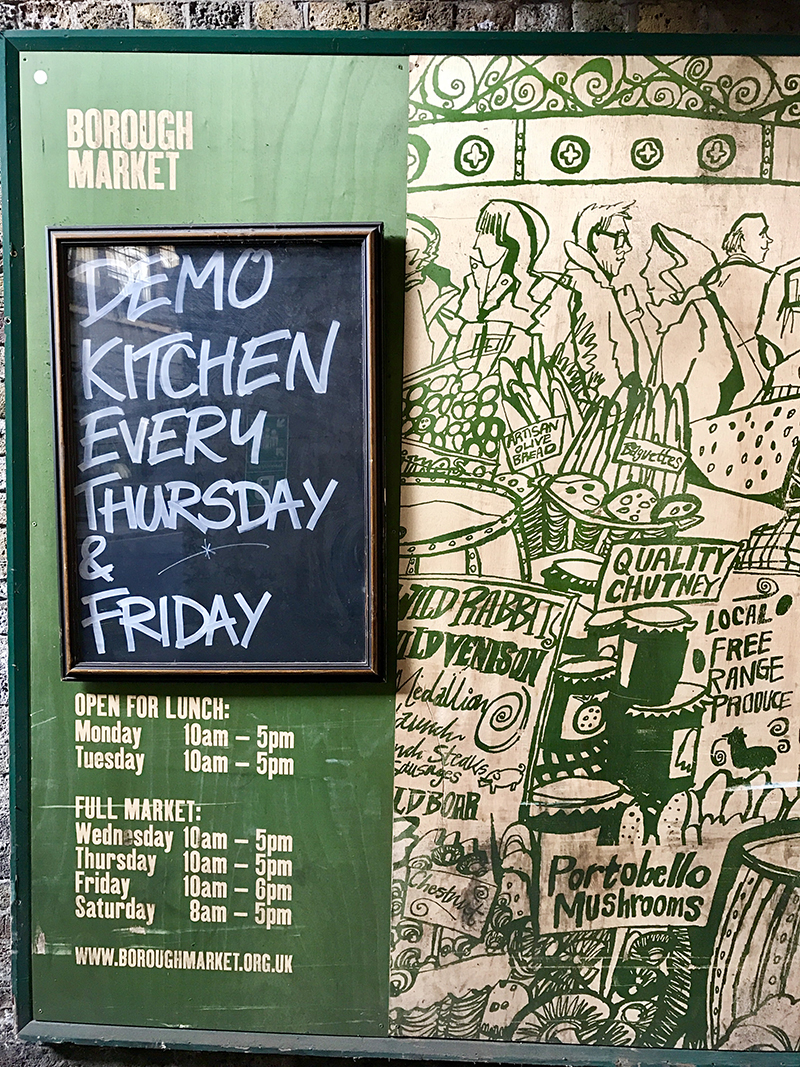 BOROUGH
MARKET
DEMO
KITCHEN
EVERY
THURSDAY
&
FRIDAY
OPEN FOR LUNCH:
Monday 10am – 5pm
Tuesday 10am – 5pm
FULL MARKET:
Wednesday 10am – 5pm
Thursday 10am – 5pm
Friday 10am – 6pm
Saturday 8am – 5pm
WWW.BOROUGHMARKET.ORG.UK
ARTISAN
OLIVE
BREAD
Baguettes
QUALITY
CHUTNEY
WILD RABBIT
ILD VENISON
Medallion
aunch
Steaks
sausages
LD BOAR
LOCAL
FREE
RANGE
PRODUCE
Chestnut
Portobello
MUSHROOMS